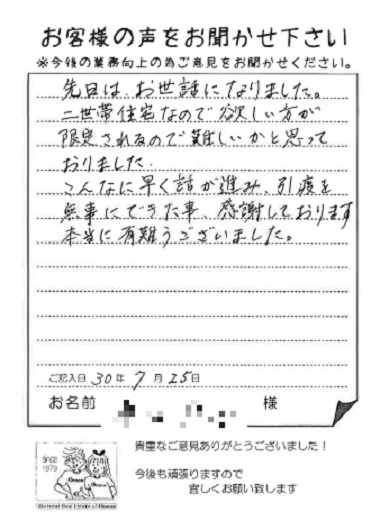 お客様の声をお聞かせ下さい
※今後の業務向上の為ご意見をお聞かせください。
先日は、お世話になりました。
二世帯住宅なので欲しい方が
限定されるので難しいかと思って
おりました.
こんなに早く話が進み、引渡を
無事にできた事、感謝しております
本当に有難うございました。
ご記入日 30年 7月 25日
お名前 様
貴重なご意見ありがとうございました!
今後も頑張りますので
宜しくお願い致します
Since
1979
Grace
Grace